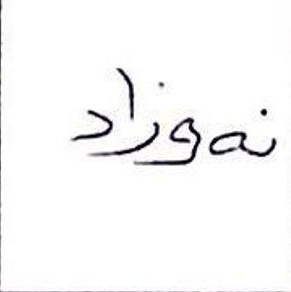 نەوزاد